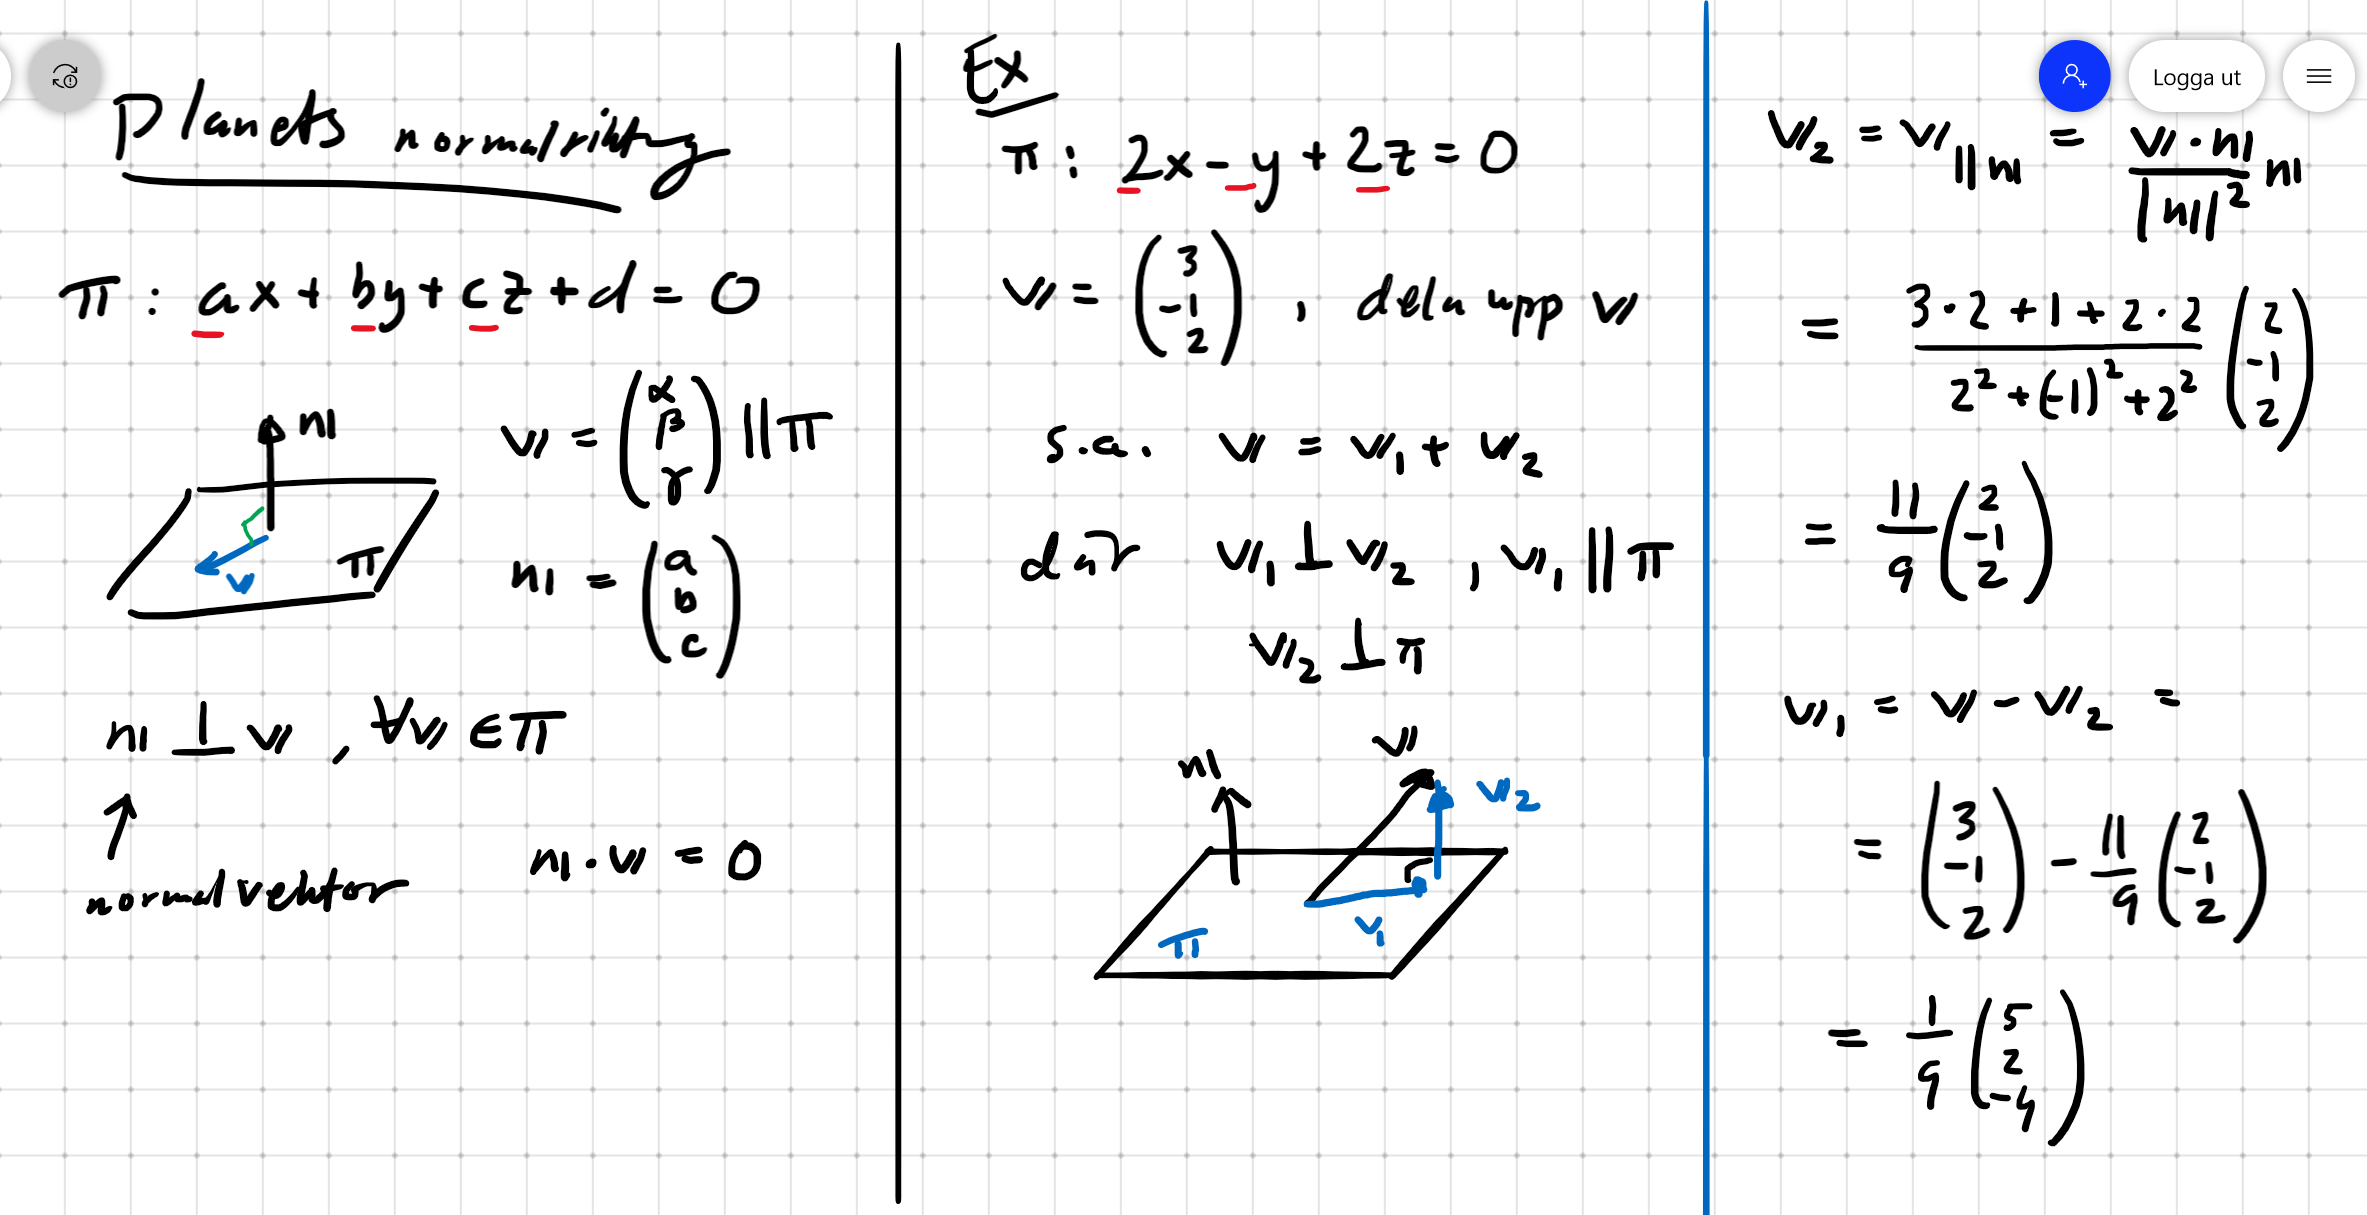 Planets normalriktning
π : ax + by + cz + d = 0
n
v = (α β γ) || π
v
π
n = (a b c)
n ⊥ v , ∀v ∈ π
↑
normalvektor
n · v = 0
Ex
π : 2x - y + 2z = 0
v = (3 -1 2) , dela upp v
s.a. v = v₁ + v₂
där v₁ ⊥ v₂ , v₁ || π
v₂ ⊥ π
n
v
v₂
π
v₁
Logga ut
v₂ = v_{||n} = (v · n)/|n|² n
= (3 · 2 + 1 + 2 · 2)/(2² + (-1)² + 2²) (2 -1 2)
= 11/9 (2 -1 2)
v₁ = v - v₂ =
= (3 -1 2) - 11/9 (2 -1 2)
= 1/9 (5 2 -4)